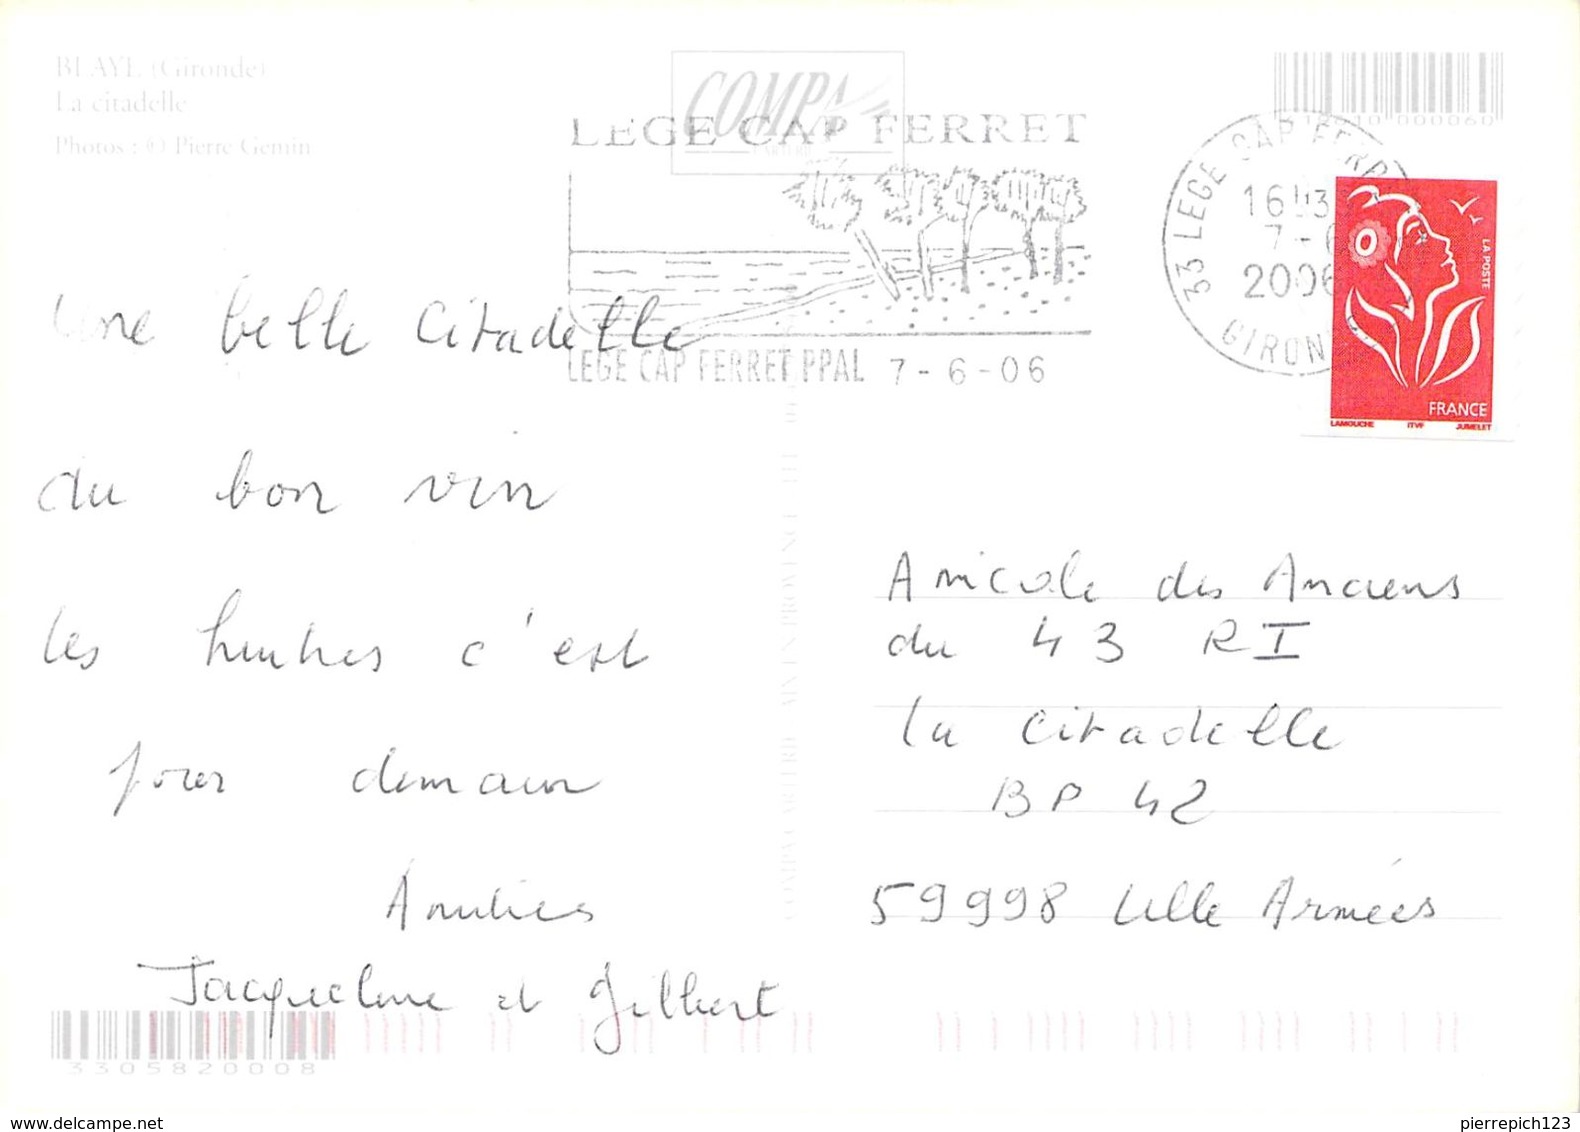 BLAYE (Gironde)
La citadelle
Photos : © Pierre Gemin
COMPA
CARTERIE
LEGE CAP FERRET
LEGE CAP FERRET PPAL 7-6-06
33 LEGE CAP FERRET
16H3
7-6
2006
GIRONDE
000060
LA POSTE
FRANCE
LAMOUCHE ITVF JUMELET
Une belle citadelle
du bon vin
les huitres c'est
pour demain
Amitiés
Jacqueline et Gilbert
COMPA CARTERIE AIX EN PROVENCE
Amicale des Anciens
du 43 RI
la citadelle
BP 42
59998 Lille Armées
3305820008
delcampe.net
pierrepich123